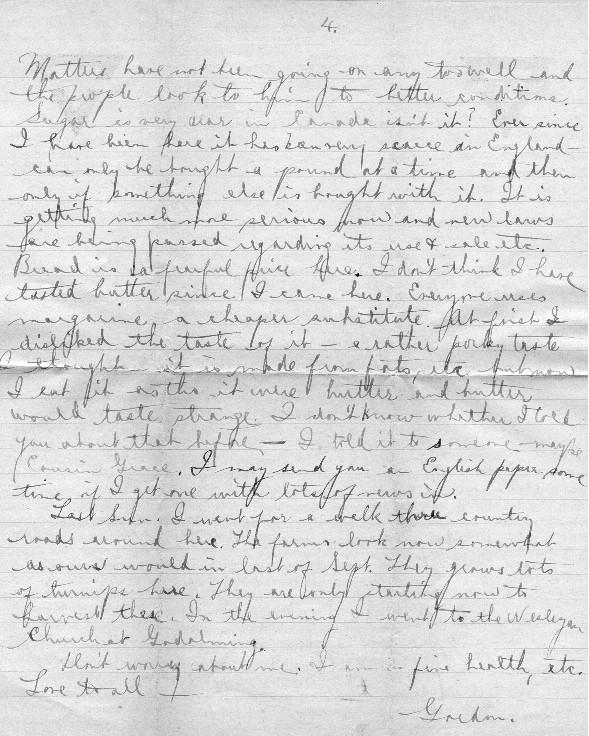 4.
Matters have not been going on any too well and
the people look to him to better conditions.
Sugar is very dear in Canada isn't it? Ever since
I have been here it has been very scarce in England -
can only be bought a pound at a time and then
only if something else is bought with it. It is
getting much more serious now and new laws
are being passed regarding its use & sale etc.
Bread is a fearful price here. I don't think I have
tasted butter since I came here. Everyone uses
margarine, a cheaper substitute. At first I
disliked the taste of it - a rather porky taste
I thought - it is made from fats, etc but now
I eat it as tho it were butter and butter
would taste strange. I don't know whether I told
you about that before - I told it to someone - maybe
Cousin Grace. I may send you an English paper some
time if I get one with lots of news in.
Last Sun. I went for a walk thru country
roads around here. The farms look now somewhat
as ours would in last of Sept. They grow lots
of turnips here. They are only starting now to
harvest them. In the evening I went to the Wesleyan
Church at Godalming.
Don't worry about me. I am in fine health, etc.
Love to all -
Gordon.